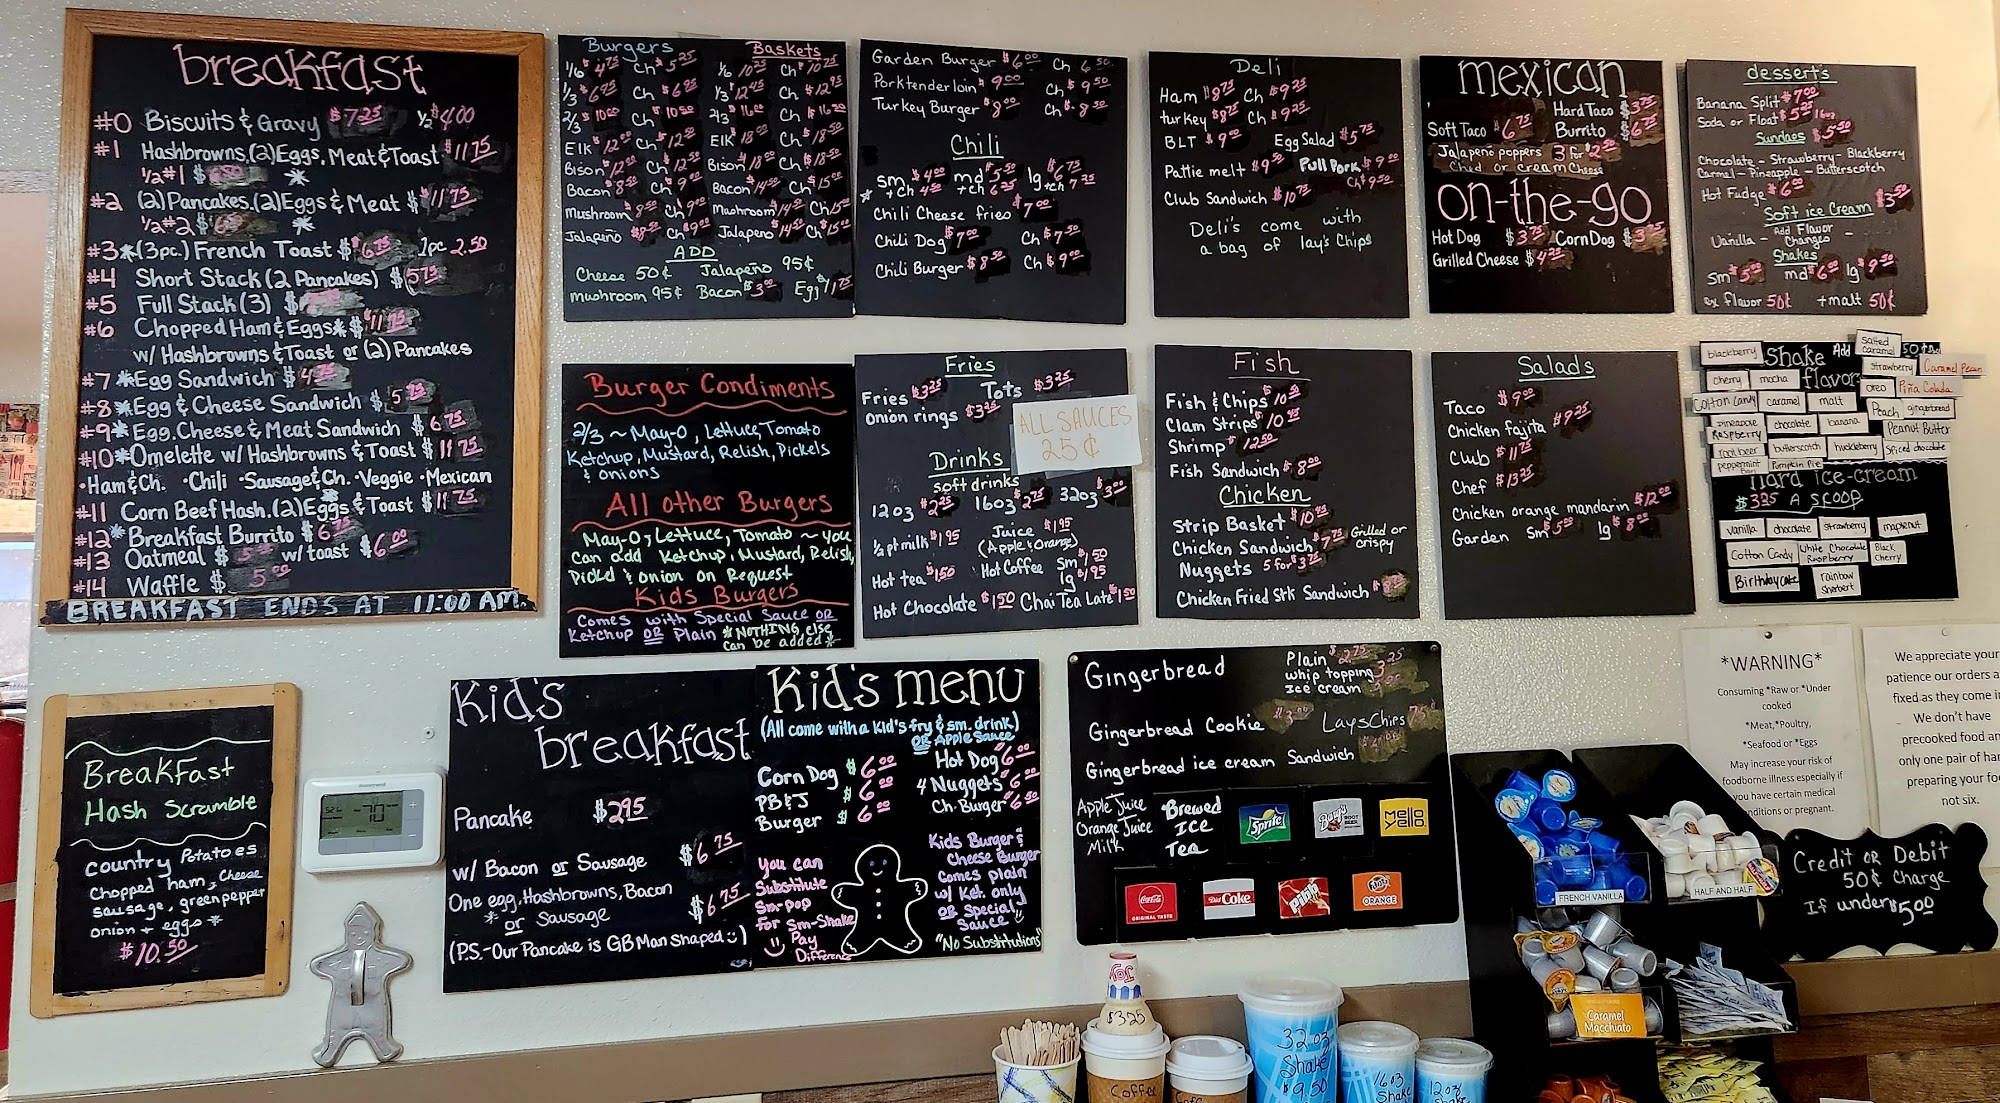 breakfast
#0 Biscuits & Gravy $7.25 ½ $4.00
#1 Hashbrowns, (2) Eggs, Meat & Toast $11.75
½ #1 $6.50 *
#2 (2) Pancakes, (2) Eggs & Meat $11.75
½ #2 $6.75 *
#3 * (3pc.) French Toast $6.75 1pc 2.50
#4 Short Stack (2 Pancakes) $5.75
#5 Full Stack (3) $
#6 Chopped Ham & Eggs * $11.75
w/ Hashbrowns & Toast or (2) Pancakes
#7 * Egg Sandwich $4.75
#8 * Egg & Cheese Sandwich $5.75
#9 * Egg, Cheese & Meat Sandwich $6.75
#10 * Omelette w/ Hashbrowns & Toast $11.75
• Ham & Ch. • Chili • Sausage & Ch. • Veggie • Mexican
#11 Corn Beef Hash, (2) Eggs & Toast $11.75
#12 * Breakfast Burrito $6.75
#13 Oatmeal $5.00 w/ toast $6.00
#14 Waffle $5.00
BREAKFAST ENDS AT 11:00 AM.
Burgers
1/6 $4.75 Ch $5.25
1/3 $6.45 Ch $6.95
2/3 $10.00 Ch $10.50
Elk $12.00 Ch $12.50
Bison $12.00 Ch $12.50
Bacon $8.50 Ch $9.00
Mushroom $8.50 Ch $9.00
Jalapeño $8.50 Ch $9.00
Baskets
1/6 10.25 Ch $10.75
1/3 $12.45 Ch $12.95
2/3 $16.00 Ch $16.50
Elk 18.00 Ch $18.50
Bison $18.00 Ch $18.50
Bacon $14.50 Ch $15.00
Mushroom $14.50 Ch $15.00
Jalapeño $14.50 Ch $15.00
ADD
Cheese 50¢ Jalapeño 95¢
Mushroom 95¢ Bacon $3.00 Egg $1.75
Garden Burger $6.00 Ch 6.50
Porktenderloin $9.00 Ch $9.50
Turkey Burger $8.00 Ch $8.50
Chili
sm $4.00 md $5.50 lg $6.75
* + ch 4.50 + ch 6.25 + ch 7.25
Chili Cheese fries $7.00
Chili Dog $7.00 Ch $7.50
Chili Burger $8.50 Ch $9.00
Deli
Ham $8.75 Ch $9.25
turkey $8.75 Ch $9.25
BLT $9.00 Egg Salad $5.75
Pattie melt $9.50 Pull Pork $9.00
Ch $9.50
Club Sandwich $10.75
Deli's come with
a bag of lay's Chips
mexican
Hard Taco $3.75
Soft Taco $6.75 Burrito $6.75
Jalapeño poppers 3 for $2.50
Ched or cream cheese
on-the-go
Hot Dog $3.75 Corn Dog $3.75
Grilled Cheese $4.25
desserts
Banana Split $7.00
Soda or Float $5.25 16oz
Sundaes $5.50
Chocolate - Strawberry - Blackberry
Carmel - Pineapple - Butterscotch
Hot Fudge $6.00
Soft ice Cream $3.50
Add Flavor
Vanilla - Changes -
Shakes
sm $5.00 md $6.00 lg $9.50
ex flavor 50¢ + malt 50¢
Burger Condiments
2/3 ~ May-O, Lettuce, Tomato
Ketchup, Mustard, Relish, Pickels
& onions
All other Burgers
May-O, Lettuce, Tomato ~ you
can add Ketchup, Mustard, Relish,
Pickel & onion on Request
Kids Burgers
Comes with Special Sauce OR
Ketchup OR Plain * NOTHING else
can be added *
Fries
Fries $3.25 Tots $3.25
Onion rings $3.25
ALL SAUCES
25¢
Drinks
soft drinks
12oz $2.25 16oz $2.75 32oz $3.00
½ pt milk $1.95 Juice $1.95
(Apple & Orange)
Hot tea $1.50 Hot Coffee sm $1.50
lg $1.95
Hot Chocolate $1.50 Chai Tea Late $1.50
Fish
Fish & Chips $10.50
Clam Strips $10.95
Shrimp $12.50
Fish Sandwich $8.00
Chicken
Strip Basket $10.95
Chicken Sandwich $7.75 Grilled or
crispy
Nuggets 5 for $3.75
Chicken Fried Stk Sandwich $8.75
Salads
Taco $9.00
Chicken fajita $9.25
Club $11.75
Chef $13.25
Chicken orange mandarin $12.00
Garden sm $5.00 lg $8.00
Shake Add 50¢
flavor
blackberry
salted
caramel
strawberry
Caramel Pecan
cherry
mocha
oreo
Piña Colada
Cotton Candy
caramel
malt
Peach
gingerbread
pineapple
Raspberry
chocolate
banana
Peanut Butter
root beer
butterscotch
huckleberry
Spiced chocolate
peppermint
Pumpkin Pie
Hard ice-cream
$3.25 A SCOOP
Vanilla
chocolate
Strawberry
maplenut
Cotton Candy
White Chocolate
Raspberry
Black
Cherry
Birthdaycake
rainbow
Sherbert
Breakfast
Hash Scramble
country Potatoes
Chopped ham, Cheese
sausage, green pepper
onion + eggs *
$10.50
Kid's
breakfast
Pancake $2.95
w/ Bacon or Sausage $6.75
One egg, Hashbrowns, Bacon
* or Sausage $6.75
(P.S.-Our Pancake is GB Man Shaped)
Kid's menu
(All come with a Kid's fry & sm. drink)
OR Apple Sauce
Corn Dog $6.00
PB & J $6.00
Burger $6.00
Hot Dog $6.00
4 Nuggets $6.00
Ch. Burger $6.50
You can
Substitute
Sm-pop
for Sm-Shake
Pay
Difference
Kids Burger &
Cheese Burger
Comes plain
w/ Ket. only
OR Special
Sauce
"No Substitutions"
Gingerbread
Plain $2.75
whip topping 3.25
Ice cream
Gingerbread Cookie $3.00 Lays Chips 75¢
Gingerbread ice cream Sandwich $4.00
Apple Juice
Orange Juice
Milk
Brewed
ICE
Tea
Sprite
Barq's
ROOT BEER
Mello
yello
Coca-Cola
ORIGINAL TASTE
Diet Coke
Pibb
Fanta
ORANGE
*WARNING*
Consuming *Raw or *Under
cooked
*Meat, *Poultry,
*Seafood or *Eggs
May increase your risk of
foodborne illness especially if
you have certain medical
conditions or pregnant.
We appreciate your
patience our orders a
fixed as they come in
We don't have
precooked food an
only one pair of han
preparing your foo
not six.
Credit OR Debit
50¢ Charge
If under $5.00
FRENCH VANILLA
HALF AND HALF
Caramel
Macchiato
JOY
$3.25
Coffee
32oz
Shake
$9.50
16oz
Shake
12oz
Shake